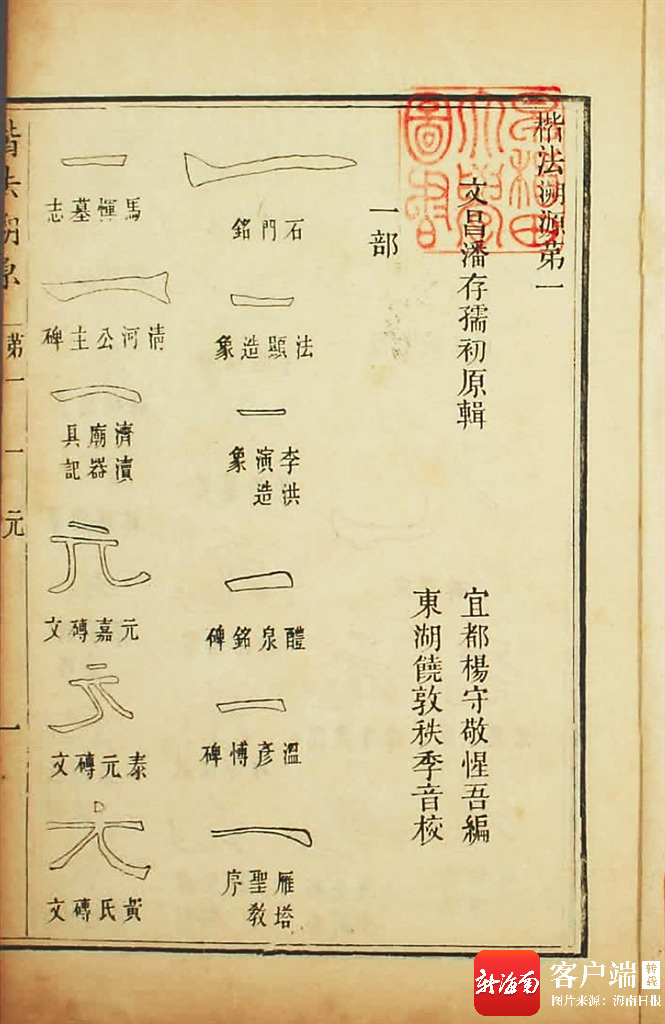 楷法溯源第一
文昌潘存孺初原輯
宜都楊守敬惺吾編
東湖饒敦秩季音校
一部
一
石門銘
一
法顯造象
一
李洪演造象
一
醴泉銘碑
一
溫彥博碑
一
雁塔聖教序
一
馬惲墓志
一
清河公主碑
一
濟瀆廟器具記
元
元嘉磚文
元
泰元磚文
元
黃氏磚文
楷法溯原
第一
一
元
一
新海南
客户端
转载
图片来源：海南日报